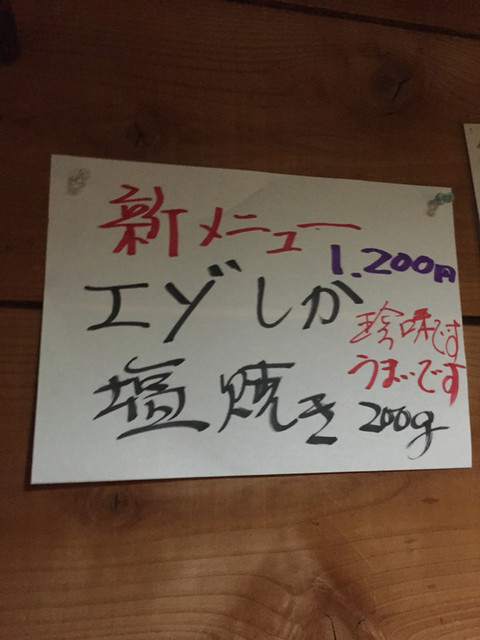 新メニュー
1.200円
エゾしか
珍味です
うまいです
塩焼き 200g